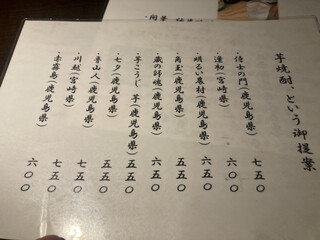 芋焼酎、という御提案
・侍士の門(鹿児島県) 七五〇
・逢初(宮崎県) 六〇〇
・明るい農村(鹿児島県) 六五〇
・角玉(鹿児島県) 五五〇
・蔵の師魂(鹿児島県) 六五〇
・芋こうじ 芋(鹿児島県) 五五〇
・七夕(鹿児島県) 五五〇
山人(鹿児島県) 五五〇
・川越(宮崎県) 七五〇
・赤霧島(鹿児島県) 六〇〇